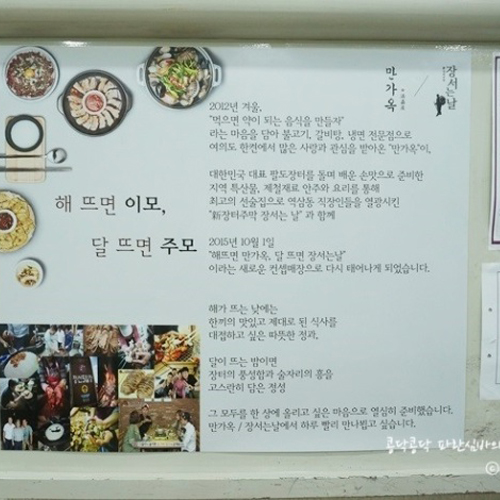 만가옥
장서는날
2012년 겨울,
"먹으면 약이 되는 음식을 만들자"
라는 마음을 담아 불고기, 갈비탕, 냉면 전문점으로
여의도 한켠에서 많은 사랑과 관심을 받아온 "만가옥"이,
대한민국 대표 팔도장터를 돌며 배운 손맛으로 준비한
지역 특산물, 제철재료 안주와 요리를 통해
최고의 선술집으로 역삼동 직장인들을 열광시킨
"新장터주막 장서는 날" 과 함께
해 뜨면 이모,
달 뜨면 주모
2015년 10월 1일
"해뜨면 만가옥, 달 뜨면 장서는날"
이라는 새로운 컨셉매장으로 다시 태어나게 되었습니다.
해가 뜨는 낮에는
한끼의 맛있고 제대로 된 식사를
대접하고 싶은 따뜻한 정과,
달이 뜨는 밤이면
장터의 풍성함과 술자리의 흥을
고스란히 담은 정성
그 모두를 한 상에 올리고 싶은 마음으로 열심히 준비했습니다.
만가옥 / 장서는날에서 하루 빨리 만나뵙고 싶습니다.
콩닥콩닥 파란심바의
©